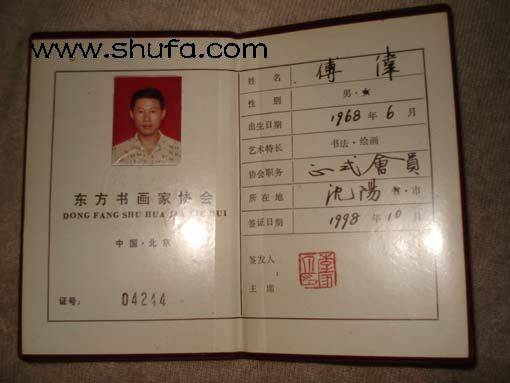 www.shufa.com
东方书画家协会
DONG FANG SHU HUA JIA XIE HUI
中国·北京
证号: 04244
姓名 傅 潍
性别 男·
出生日期 1968 年 6 月
艺术特长 书法·绘画
协会职务 正式會員
所在地 沈陽 市
签证日期 1998 年 10 月
签发人:
主席